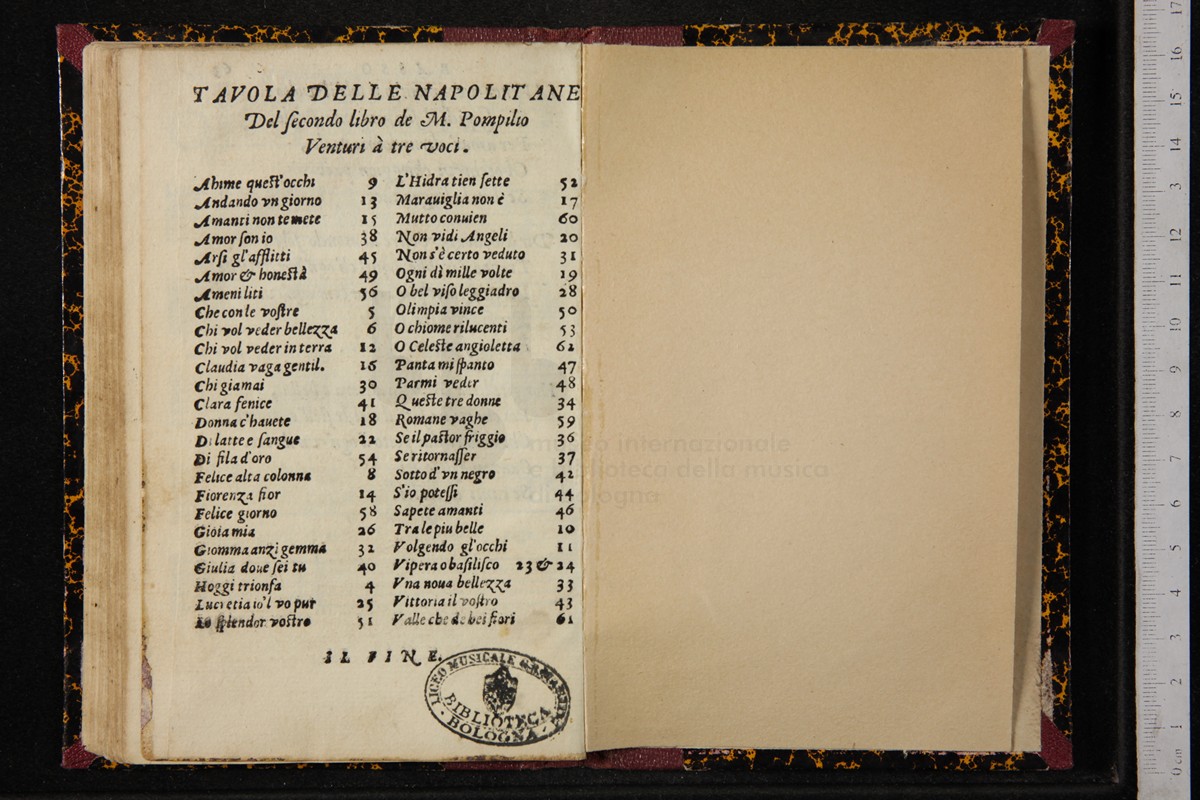 TAVOLA DELLE NAPOLITANE
Del secondo libro de M. Pompilio
Venturi à tre voci.
Ahime quest'occhi 9
Andando vn giorno 13
Amanti non temete 15
Amor son io 38
Arsi gl'afflitti 45
Amor & honestà 49
Ameni liti 56
Che con le vostre 5
Chi vol veder bellezza 6
Chi vol veder in terra 12
Claudia vaga gentil. 16
Chi giamai 30
Clara fenice 41
Donna c'hauete 18
Di latte e sangue 22
Di fila d'oro 54
Felice alta colonna 8
Fiorenza fior 14
Felice giorno 58
Gioia mia 26
Giomma anzi gemma 32
Giulia doue sei tu 40
Hoggi trionfa 4
Lucretia io'l vo pur 25
Lo splendor vostro 51
L'Hidra tien sette 52
Marauiglia non è 17
Mutto conuien 60
Non vidi Angeli 20
Non s'è certo veduto 31
Ogni dì mille volte 19
O bel viso leggiadro 28
Olimpia vince 50
O chiome rilucenti 53
O Celeste angioletta 62
Panta mi spanto 47
Parmi veder 48
Queste tre donne 34
Romane vaghe 59
Se il pastor friggio 36
Se ritornasser 37
Sotto d'vn negro 42
S'io potessi 44
Sapete amanti 46
Tra le piu belle 10
Volgendo gl'occhi 11
Vipera o basilisco 23 & 24
Vna noua bellezza 33
Vittoria il vostro 43
Valle che de bei fiori 61
IL FINE.
LICEO MUSICALE
BIBLIOTECA
BOLOGNA
museo internazionale
e biblioteca della musica
di bologna
0 cm 1 2 3 4 5 6 7 8 9 10 11 12 13 14 15 16 17